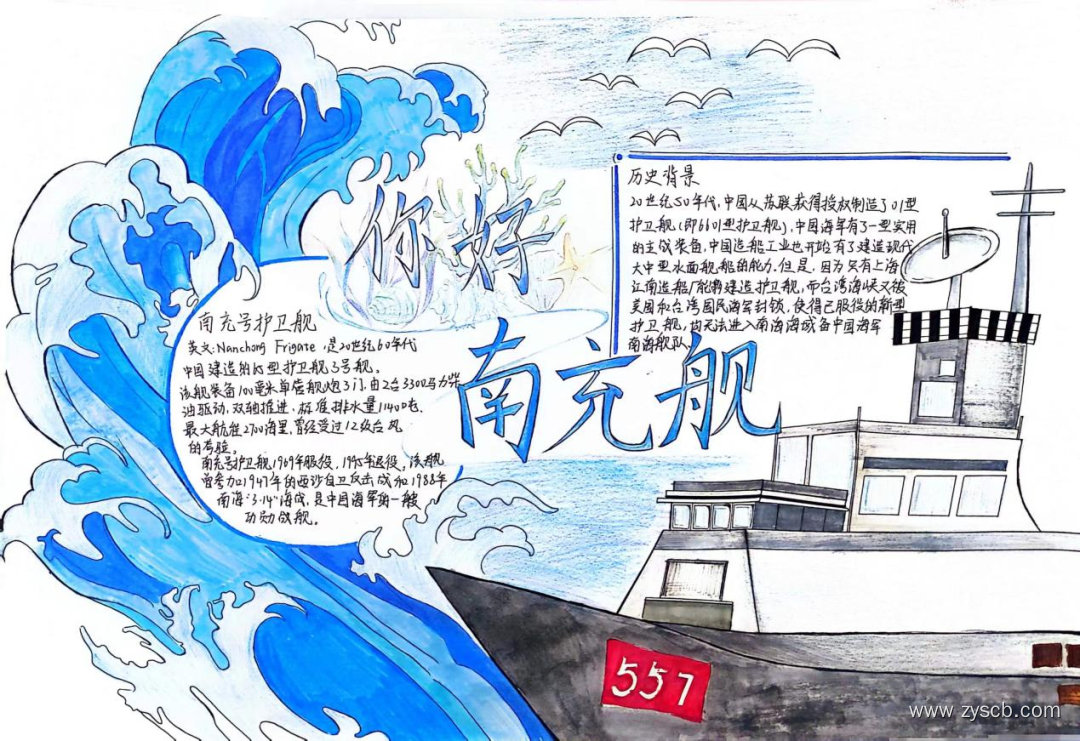 你好
南充舰
南充号护卫舰
英文:Nanchong Frigate,是20世纪60年代
中国建造的65型护卫舰3号舰。
该舰装备100毫米单管舰炮3门,由2台3300马力柴
油驱动,双轴推进,标准排水量1140吨,
最大航程2700海里,曾经受过12级台风
的考验。
南充号护卫舰1969年服役,1995年退役,该舰
曾参加1947年的西沙自卫反击战和1988年
南海"3·14"海战,是中国海军第一艘
功勋战舰。
历史背景
20世纪50年代,中国从苏联获得授权制造了01型
护卫舰(即6601型护卫舰),中国海军有了一型实用
的主战装备,中国造船工业也开始有了建造现代
大中型水面舰船的能力。但是,因为只有上海
江南造船厂能够建造护卫舰,而台湾海峡又被
美国和台湾国民海军封锁,使得已服役的新型
护卫舰,均无法进入南海海域备中国海军
南海舰队。
557
www.zyscb.com